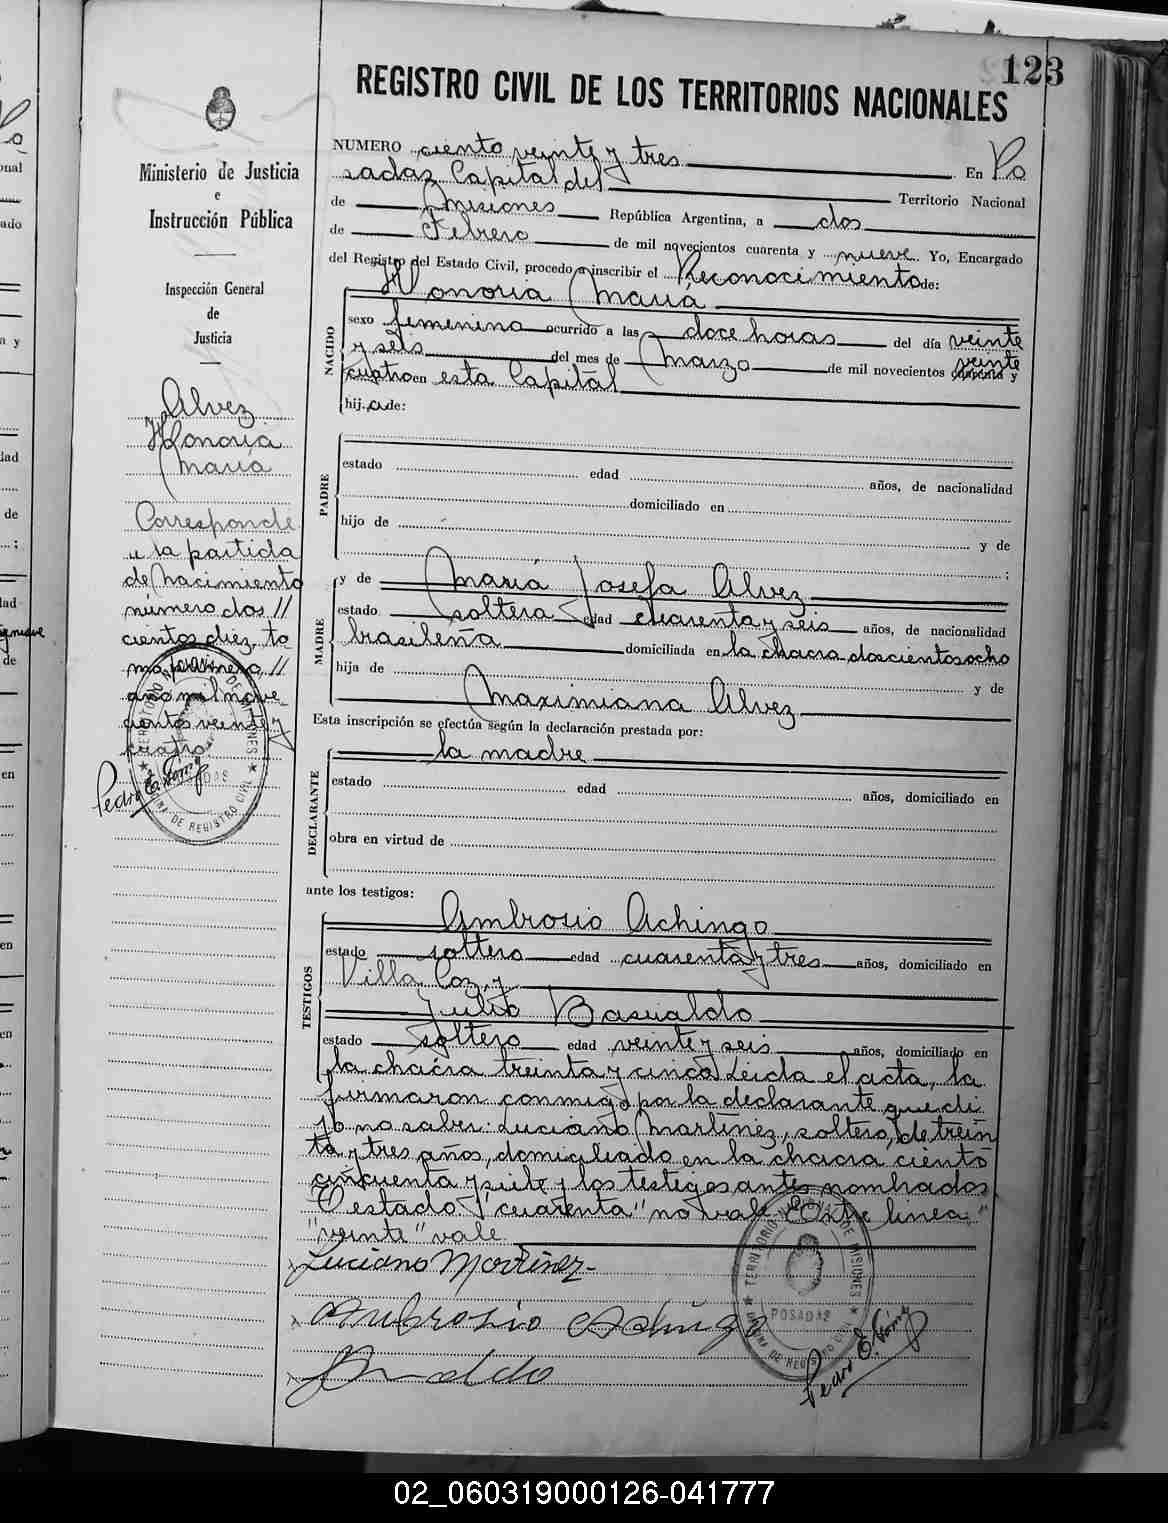 123
REGISTRO CIVIL DE LOS TERRITORIOS NACIONALES
Ministerio de Justicia
e
Instrucción Pública
Inspección General
de
Justicia
Alvez
Honoria
Maria
Corresponde
a la partida
de Nacimiento
número dos //
cientos diez, to
mo primero, //
año mil nove-
cientos veinte y
cuatro
NUMERO ciento veinte y tres En Po
sadas Capital del Territorio Nacional
de Misiones República Argentina, a dos
de Febrero de mil novecientos cuarenta y nueve Yo, Encargado
del Registro del Estado Civil, procedo a inscribir el Reconocimiento de:
NACIDO
Honoria Maria
sexo femenino ocurrido a las doce horas del día veinte
y seis del mes de Marzo de mil novecientos cuarenta y veinte
cuatro en esta Capital
hija de:
PADRE
estado edad años, de nacionalidad
domiciliado en
hijo de
y de
;
MADRE
y de Maria Josefa Alvez
estado soltera edad cuarenta y seis años, de nacionalidad
brasileña domiciliada en la chacra doscientos ocho
hija de y de
Maximiana Alvez
Esta inscripción se efectúa según la declaración prestada por:
DECLARANTE
la madre
estado edad años, domiciliado en
obra en virtud de
ante los testigos:
TESTIGOS
Ambrosio Achingo
estado soltero edad cuarenta y tres años, domiciliado en
Villa Coz, y
Julio Basualdo
estado soltero edad veinte y seis años, domiciliado en
la chacra treinta y cinco Leida el acta, la
firmaron conmigo por la declarante que di
jo no saber: Luciano Martinez, soltero, de trein
ta y tres años, domiciliado en la chacra ciento
cincuenta y siete y los testigos antes nombrados
estado "cuarenta" no vale Entre linea: "
"veinte" vale
Luciano Martinez-
Ambrosio Achingo
TERRITORIO NACIONAL DE MISIONES
POSADAS
OFICINA DE REGISTRO CIVIL
02_060319000126-041777